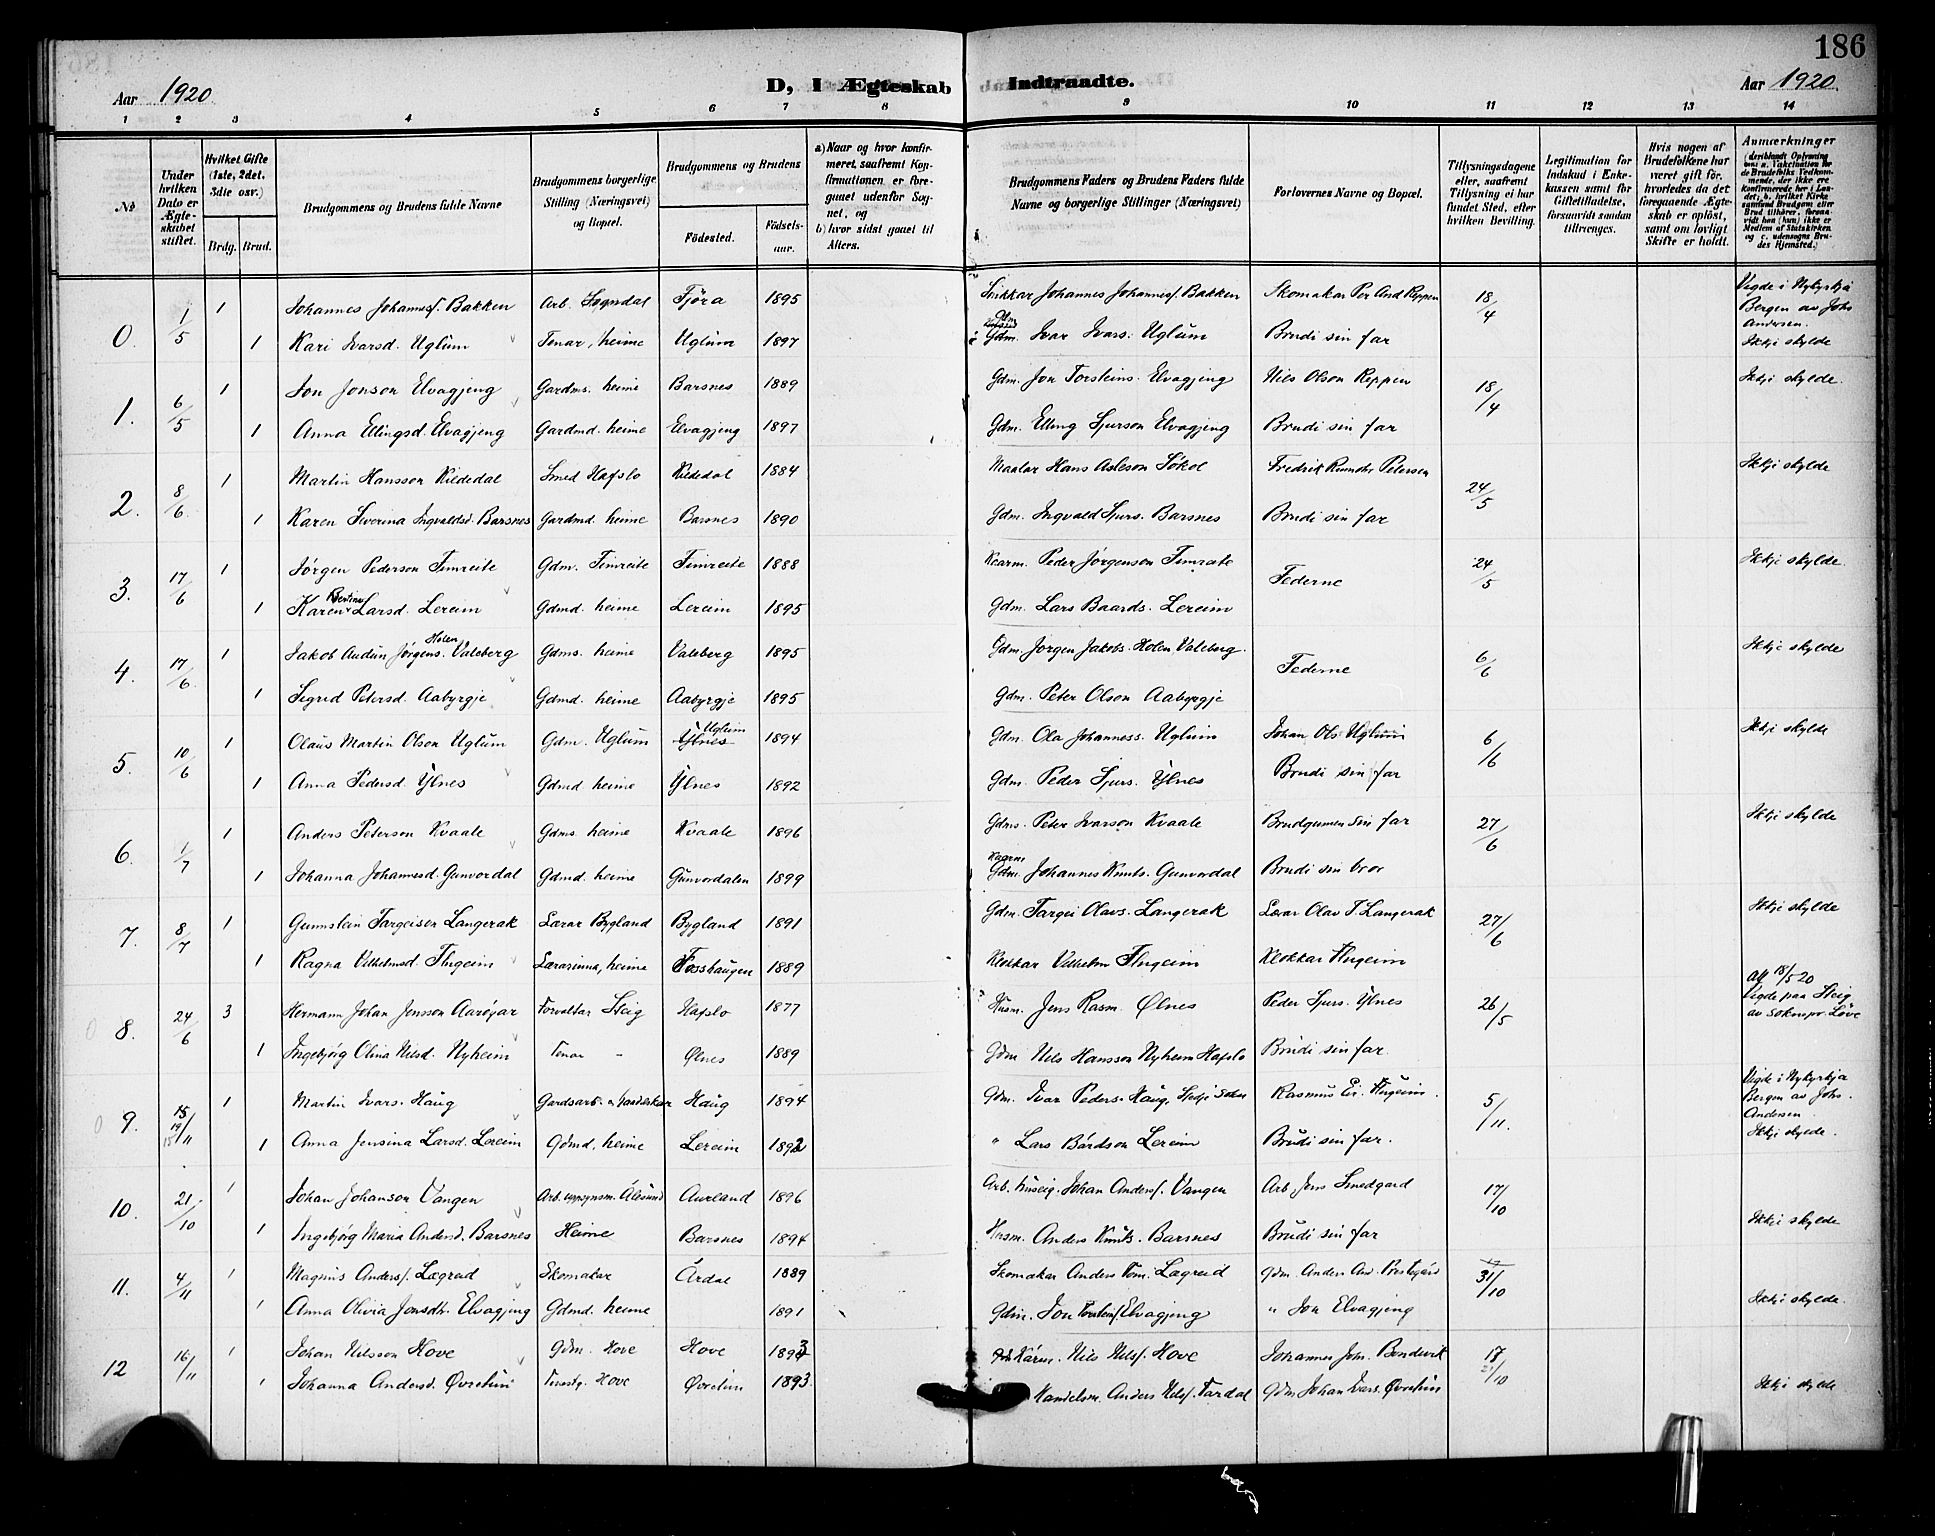 186
Aar 1920
D, I Ægteskab Indtraadte.
Aar 1920
1 2 3 4 5 6 7 8 9 10 11 12 13 14
№
Under hvilken Dato er Ægteskabet stiftet.
Hvilket Gifte (1ste, 2det, 3die osv.)
Brdg. Brud.
Brudgommens og Brudens fulde Navne
Brudgommens borgerlige Stilling (Næringsvei) og Bopæl.
Brudgommens og Brudens
Fødested.
Fødselsaar.
a) Naar og hvor konfirmeret, saafremt Konfirmationen er foregaaet udenfor Sognet, og
b) hvor sidst gaaet til Alters.
Brudgommens Faders og Brudens Faders fulde Navne og borgerlige Stillinger (Næringsvei)
Forlovernes Navne og Bopæl.
Tillysningsdagene eller, saafremt Tillysning ei har fundet Sted, efter hvilken Bevilling.
Legitimation for Indskud i Enkekassen samt for Giftetilladelse, forsaavidt saadan tiltrænges.
Hvis nogen af Brudefolkene har været gift før, hvorledes da det foregaaende Ægteskab er opløst, samt om lovligt Skifte er holdt.
Anmærkninger
0. 1/5 1 Johannes Johannesf. Bakken Arb. Sogndal Fjöra 1895 Snikkar Johannes Johannesf. Bakken Skomakar Per And Reppen 18/4 Vigde i Nykyrkja Bergen av Johs Andersen.
1 Kari Ivarsd. Uglum Tenar, heime Uglum 1897 Gdm. Ivar Ivars. Uglum Brudi sin far Ikkje skylde
1. 6/5 1 Jon Jonson Elvagjeng Gardms. heime Barsnes 1889 Gdm. Jon Torsteins. Elvagjeng Nils Olson Reppen 18/4 Ikkje skylde.
1 Anna Ellingsd. Elvagjeng Gardmd. heime Elvagjeng 1897 Gdm. Elling Sjurson Elvagjeng Brudi sin far
2. 8/6 1 Martin Hansson Kildedal Smed Hafslo Kildedal 1884 Maalar Hans Asleson Søkol Fredrik Petersen 24/5 Ikkje skylde
1 Karen Severina Ingvaldsd. Barsnes Gardmd. heime Barsnes 1890 Gdm. Ingvald Sjurs. Barsnes Brudi sin far
3. 17/6 1 Jörgen Pederson Fimreite Gdm. Fimreite Fimreite 1888 Kaarm. Peder Jörgenson Fimreite Federne 24/5 Ikkje skylde.
1 Karen Bertina Larsd. Lereim Gdmd. heime Lereim 1895 Gdm. Lars Baards. Lereim
4. 17/6 1 Jakob Audun Jørgens. Holen Valeberg Gdms. heime Valeberg 1895 Gdm. Jørgen Jakobs. Holen, Valeberg. Federne 6/6 Ikkje skylde
1 Sigrid Petersd. Aabyrgje Gdmd. heime Aabyrgje 1895 Gdm. Peter Olson Aabyrgje
5. 10/6 1 Olaus Martin Olson Uglum Gdm. Uglum Uglum 1894 Gdm. Ola Johanness. Uglum Johan Ols. Uglum 6/6 Ikkje skylde
1 Anna Pedersd. Ylnes Gdmd. heime Ylnes 1892 Gdm. Peder Sjurs. Ylnes Brudi sin far
6. 1/7 1 Anders Peterson Kvaale Gdms. heime Kvaale 1896 Gdms. Peter Ivarson Kvaale Brudgumen sin far 27/6 Ikkje skylde
1 Johanna Johannesd. Gunvordal Gdmd. heime Gunvordalen 1899 Kaarm. Gdm. Johannes Knuts. Gunvordal Brudi sin bror
7. 8/7 1 Gunnstein Targeiser Langerak Lærar Bygland Bygland 1891 Gdm. Targei Olavs. Langerak Lærar Olav T. Langerak 27/6 Ikkje skylde
1 Ragna Vilhelmsd. Flugeim Lærarinna, heime Fosshaugen 1889 Klokkar Vilhelm Flugeim Klokkar Flugeim
8. 24/6 3 Hermann Johan Jensson Aaröyar Forvaltar Steig Hafslo 1877 Husm. Jens Rasm. Ølnes Peder Sjurs. Ylnes 26/5 Att 18/5 20 Vigde paa Steig av soknepr. Löve
1 Ingebjörg Olina Nilsd. Nyheim Tenar - Ølnes 1889 Gdm Nils Hansson Nyheim Hafslo Brudi sin far.
9. 15/11 1 Martin Ivars. Haug Haug 1894 Gdm. Ivar Peders. Haug, Stedje sokn Rasmus Ei. Flugeim. 5/11. Vigde i Nykyrkja Bergen av Johs. Andersen.
1 Anna Jensina Larsd. Lereim Gdmd. heime Lereim 1892 " Lars Bårdson Lereim Brudi sin far. Ikkje skylde.
10. 21/10 1 Johan Johanson Vangen Arb. uppsynsm. Ålesund Aurland 1896 Arb. huseig. Johan Andersf. Vangen Arb. Jens Smedgard 17/10
1 Ingebjörg Maria Andersd. Barsnes Heime Barsnes 1894 Husm. Anders Knuts. Barsnes Brudi sin far Ikkje skylde
11. 4/11 1 Magnus Andersf. Lægreid Skomakar Årdal 1889 Skomakar Anders Tom. Lægreid Gdm. Anders And. Prestegård 31/10
1 Anna Olivia Jonsdtr. Elvagjeng Gdmd. heime 1891 Gdm. Jon Torsteinsf. Elvagjeng " Jon Elvagjeng Ikkje skylde.
12 16/11 1 Johan Nilsson Hove Gdm. Hove Hove 1893 Kårm. Nils Nilsf. Hove Johannes Joh. Bondevik 17/10
1 Johanna Andersd. Øvretun Hove Øvretun 1893. Handelsm. Anders Nilsf. Tardal Gdm Johan Ivars. Øvretun Ikkje skylde